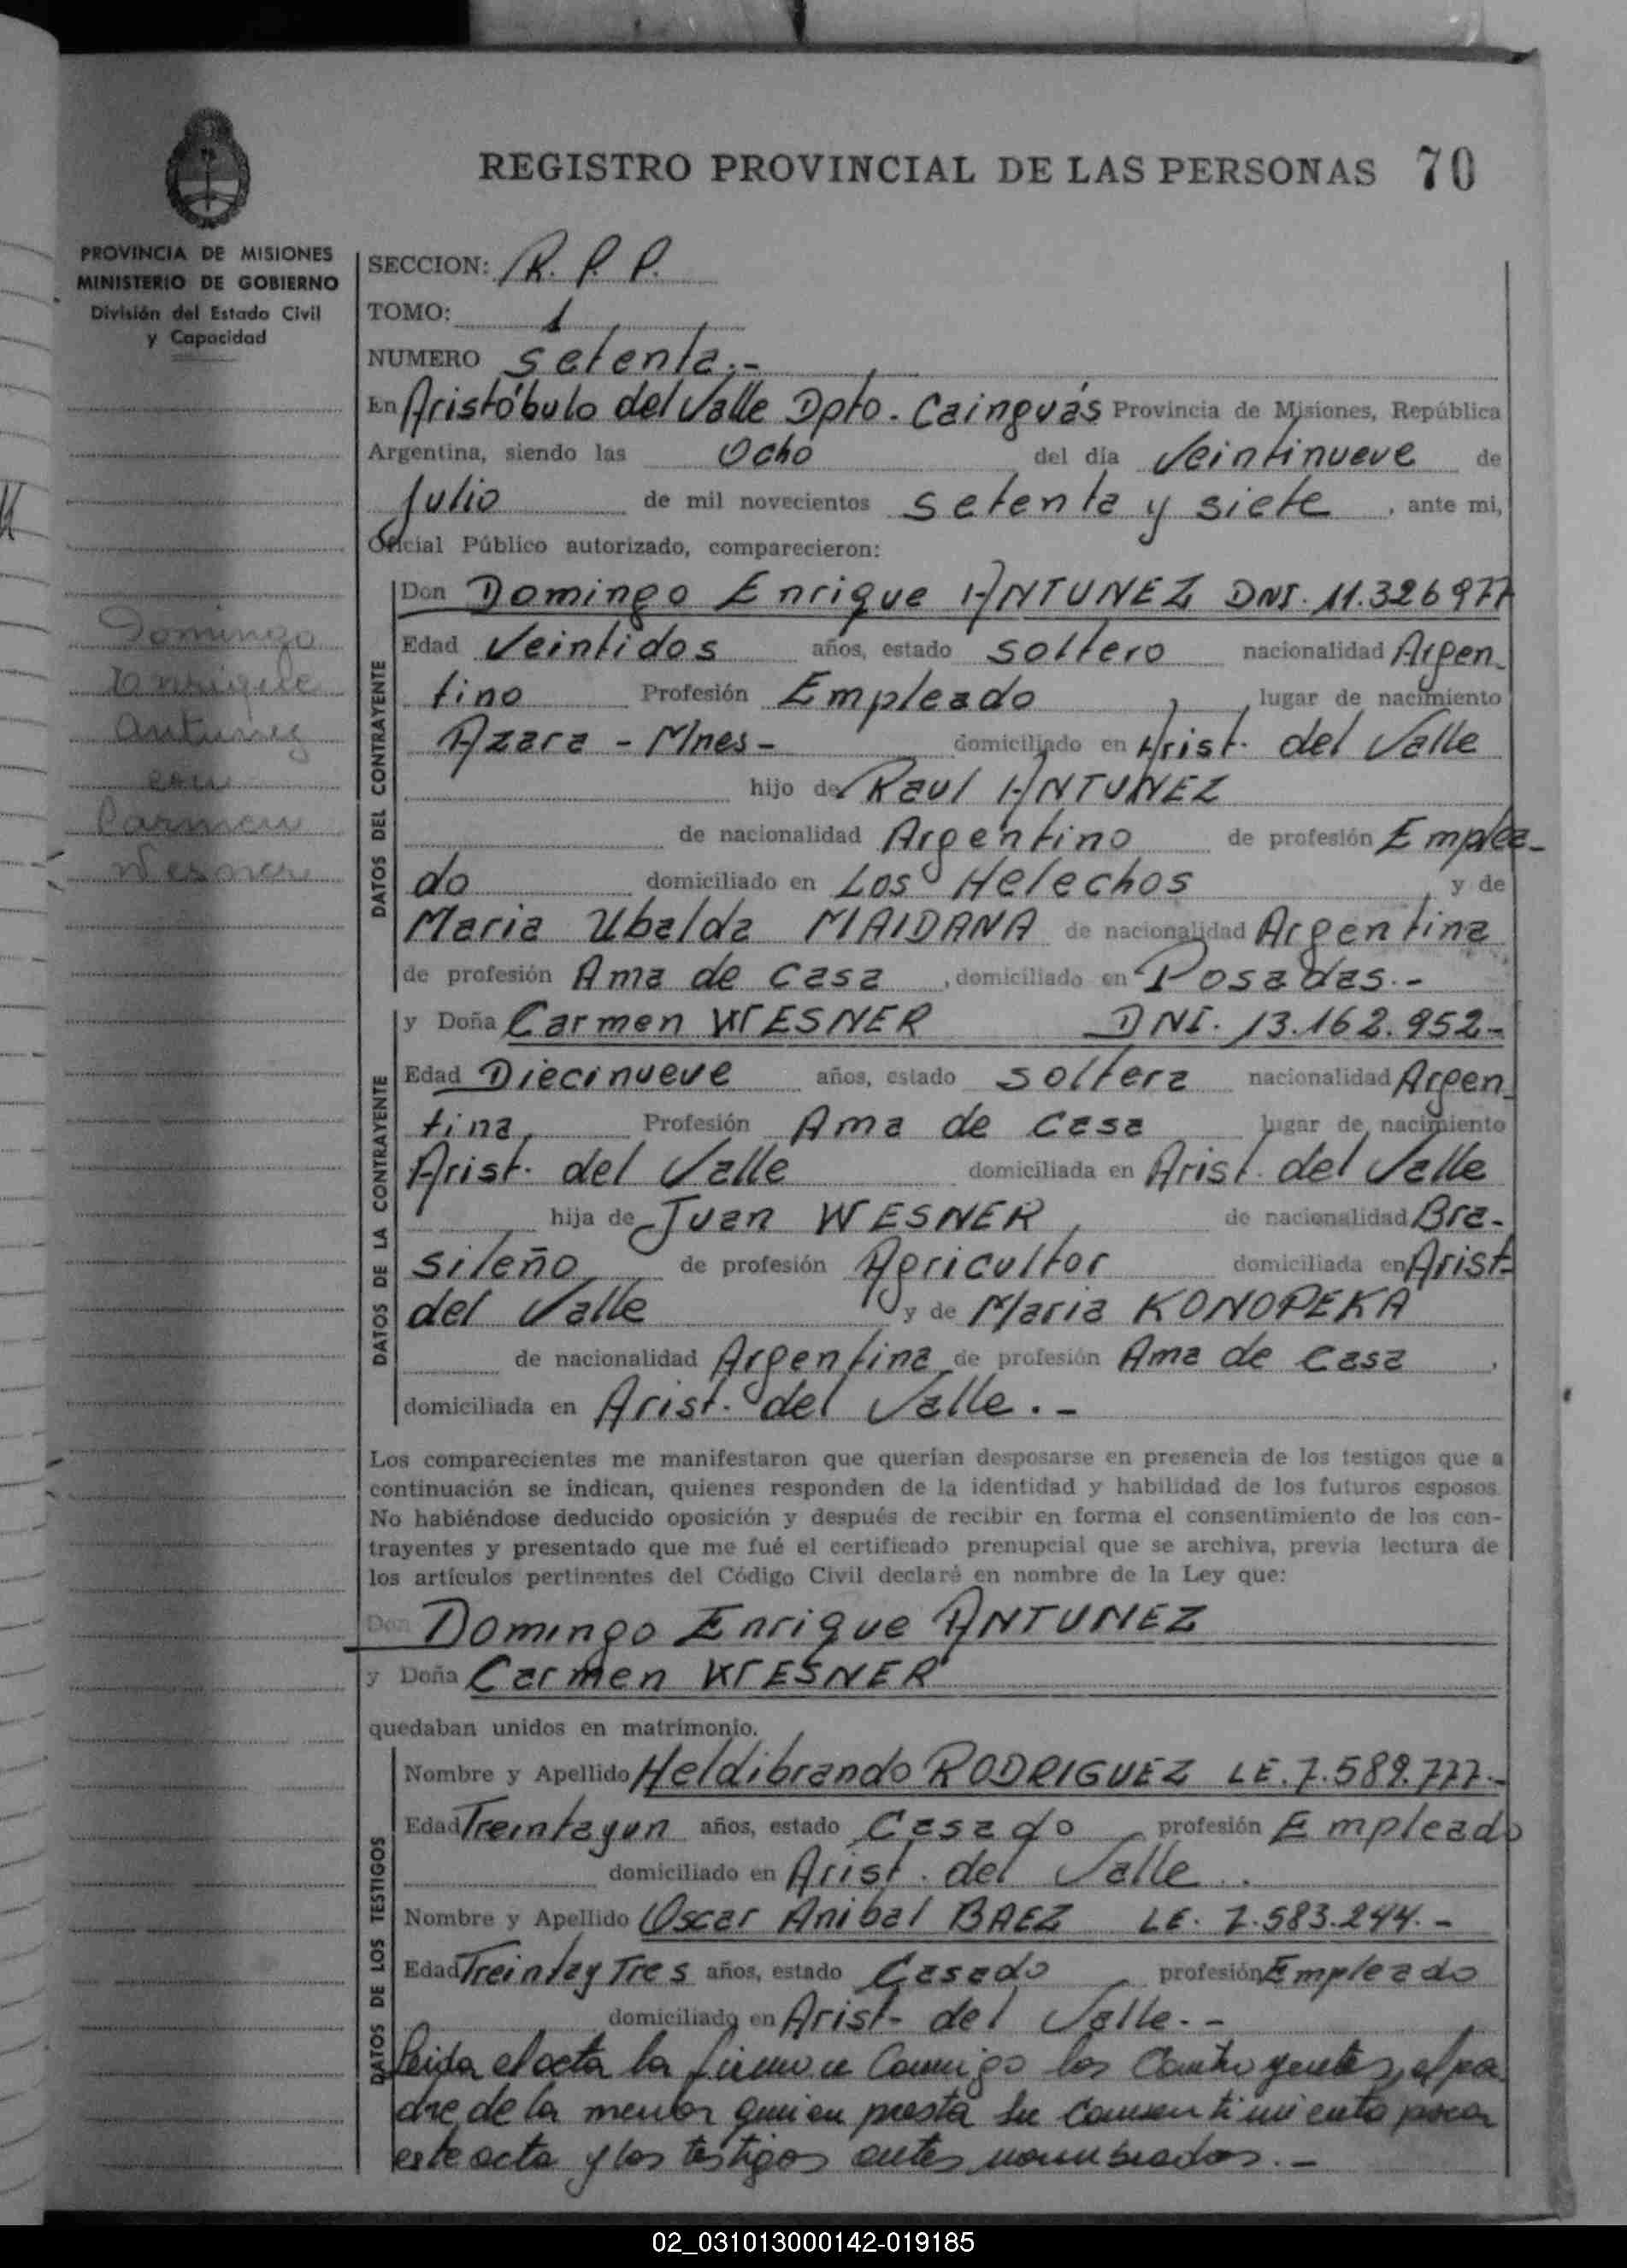 REGISTRO PROVINCIAL DE LAS PERSONAS 70
PROVINCIA DE MISIONES
MINISTERIO DE GOBIERNO
División del Estado Civil
y Capacidad
SECCION: R. P. P.
TOMO: 1
NUMERO setenta.-
En Aristóbulo del Valle Dpto. Cainguás Provincia de Misiones, República
Argentina, siendo las Ocho del día Veintinueve de
Julio de mil novecientos setenta y siete, ante mi,
Oficial Público autorizado, comparecieron:
Domingo
Enrique
Antunez
con
Carmen
Wesner
DATOS DEL CONTRAYENTE
Don Domingo Enrique ANTUNEZ DNI. 11.326977
Edad Veintidos años, estado soltero nacionalidad Argen-
tino Profesión Empleado, lugar de nacimiento
Azara - Mnes- domiciliado en Arist. del Valle
hijo de Raul ANTUNEZ
de nacionalidad Argentino de profesión Emplea-
do domiciliado en Los Helechos, y de
Maria Ubalda MAIDANA de nacionalidad Argentina
de profesión Ama de casa, domiciliado en Posadas.-
DATOS DE LA CONTRAYENTE
y Doña Carmen WESNER DNI. 13.162.952-
Edad Diecinueve años, estado soltera nacionalidad Argen-
tina, Profesión Ama de casa lugar de nacimiento
Arist. del Valle domiciliada en Arist. del Valle
hija de Juan WESNER, de nacionalidad Bra-
sileño de profesión Agricultor domiciliada en Arist.
del Valle y de Maria KONOPEKA
de nacionalidad Argentina de profesión Ama de casa,
domiciliada en Arist. del Valle.-
Los comparecientes me manifestaron que querían desposarse en presencia de los testigos que a
continuación se indican, quienes responden de la identidad y habilidad de los futuros esposos.
No habiéndose deducido oposición y después de recibir en forma el consentimiento de los con-
trayentes y presentado que me fué el certificado prenupcial que se archiva, previa lectura de
los artículos pertinentes del Código Civil declaré en nombre de la Ley que:
Don Domingo Enrique ANTUNEZ
y Doña Carmen WESNER
quedaban unidos en matrimonio.
DATOS DE LOS TESTIGOS
Nombre y Apellido Heldibrando RODRIGUEZ LE. 7.589.777.-
Edad Treintayun años, estado Casado, profesión Empleado
domiciliado en Arist. del Valle.
Nombre y Apellido Oscar Anibal BAEZ LE. 7.583.244.-
Edad Treintay Tres años, estado Casado, profesión Empleado
domiciliado en Arist- del Valle.-
Leida el acta la firman conmigo los contrayentes, el pa
dre de la menor quien presta su consentimiento para
este acto y los testigos antes nombrados.-
02_031013000142-019185